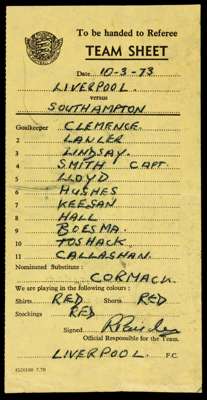 To be handed to Referee
TEAM SHEET
Date 10-3-73
LIVERPOOL
versus
SOUTHAMPTON
Goalkeeper CLEMENCE
2 LAWLER
3 LINDSAY
4 SMITH CAPT
5 LLOYD
6 HUGHES
7 KEEGAN
8 HALL
9 BOESMA
10 TOSHACK
11 CALLAGHAN
Nominated Substitute:
CORMACK
We are playing in the following colours:
Shirts RED Shorts RED
Stockings RED
Signed
Official Responsible for the Team.
LIVERPOOL F.C.